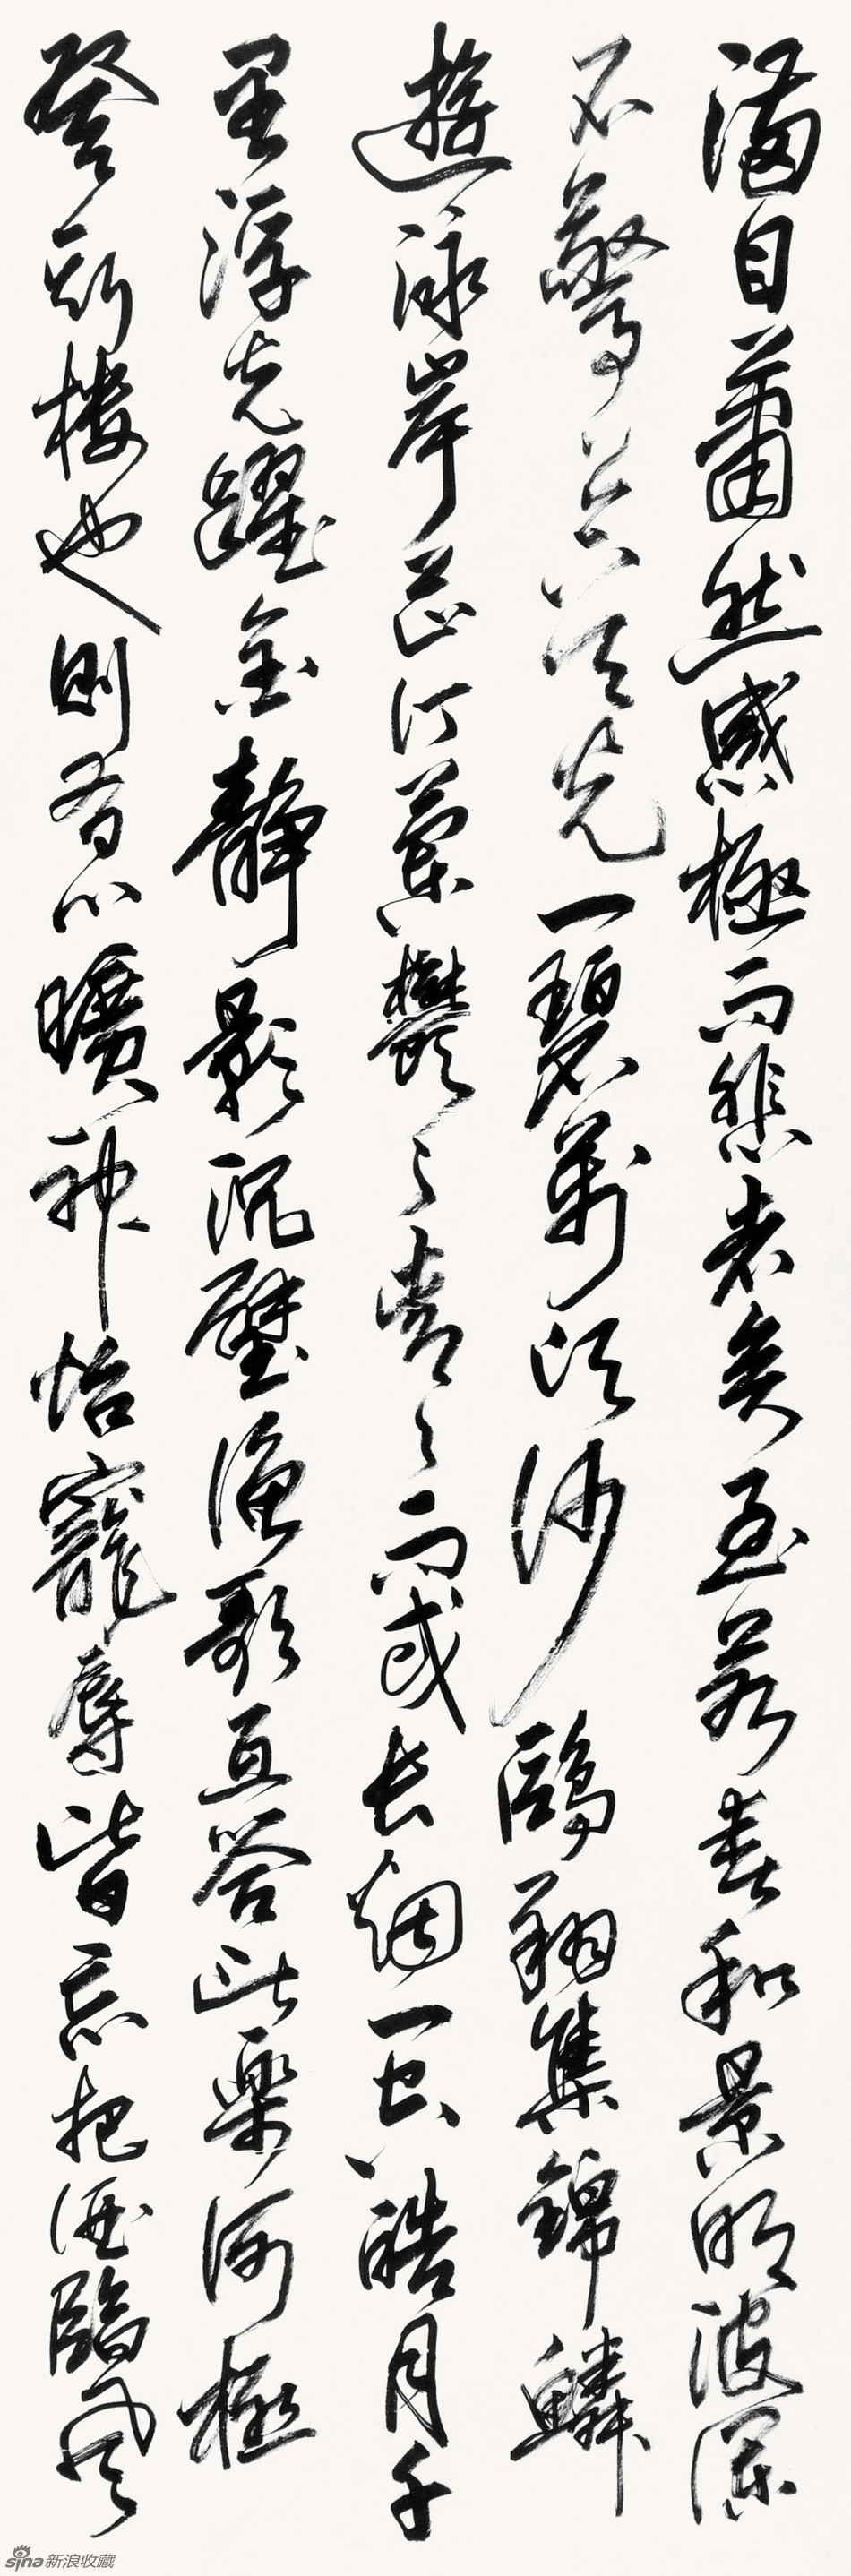 滿目蕭然感極而悲者矣至若春和景明波瀾
不驚上下天光一碧萬頃沙鷗翔集錦鱗
遊泳岸芷汀蘭鬱々青々而或長烟一空皓月千
里浮光躍金靜影沉璧漁歌互答此樂何極
登斯樓也則有心曠神怡寵辱皆忘把酒臨風
sina新浪收藏